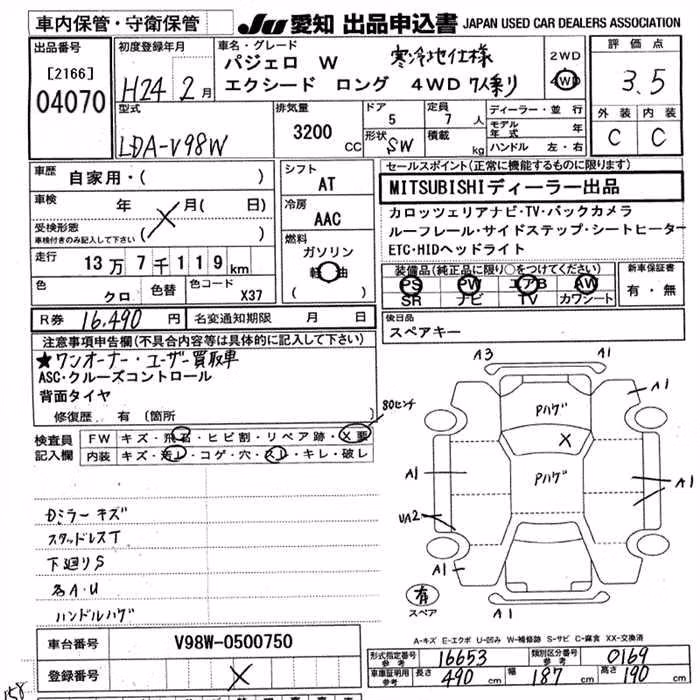 車内保管・守衛保管
JU 愛知 出品申込書 JAPAN USED CAR DEALERS ASSOCIATION
出品番号
[2166]
04070
初度登録年月
H24 2月
車名・グレード
パジェロ W 寒冷地仕様
エクシード ロング 4WD 7人乗り
2WD
4WD
評価点
3.5
外装 内装
C C
型式
LDA-V98W
排気量
3200 CC
ドア
5
定員
7 人
形状
SW
積載
kg
ディーラー・並行
モデル年式 年
ハンドル 左・右
車歴
自家用・( )
車検
年 月( 日)
受検形態
車検付きのみ記入して下さい
( )
走行
13万7千119km
色
クロ
色替
色コード
X37
シフト
AT
冷房
AAC
燃料
ガソリン
軽油
( )
セールスポイント(正常に機能するものに限ります)
MITSUBISHIディーラー出品
カロッツェリアナビ・TV・バックカメラ
ルーフレール・サイドステップ・シートヒーター
ETC・HIDヘッドライト
装備品(純正品に限り○をつけてください)
PS PW エアB AW
SR ナビ TV カワシート
新車保証書
有・無
R券 16,490 円
名変通知期限 月 日
後日品
スペアキー
注意事項申告欄(不具合内容等は具体的に記入して下さい)
★ワンオーナー・ユーザー買取車
ASC・クルーズコントロール
背面タイヤ
修復歴 有 〔箇所 〕
検査員記入欄
FW キズ・飛石・ヒビ割・リペア跡・X要
80センチ
内装 キズ・汚レ・コゲ・穴・スレ・キレ・破レ
Dミラーキズ
スタッドレスT
下廻りS
各A・U
ハンドルハゲ
A3
A1
A1
Pハゲ
X
Pハゲ
A1
A1
UA2
A1
A1
有
スペア
A-キズ E-エクボ U-凹み W-補修跡 S-サビ C-腐食 XX-交換済
車台番号 V98W-0500750
登録番号
形式指定番号 参考 16653
類別区分番号 参考 0169
車庫証明用 参考 長さ 490 cm 幅 187 cm 高さ 190 cm
158